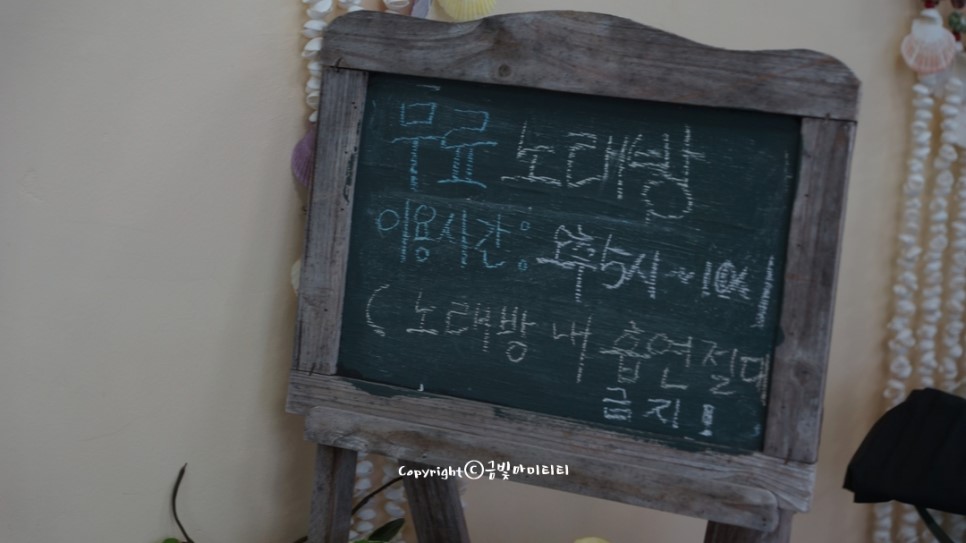 무료 노래방
이용시간:
( 노래방 내 흡연절대
금지!
Copyrightⓒ금빛마미티티